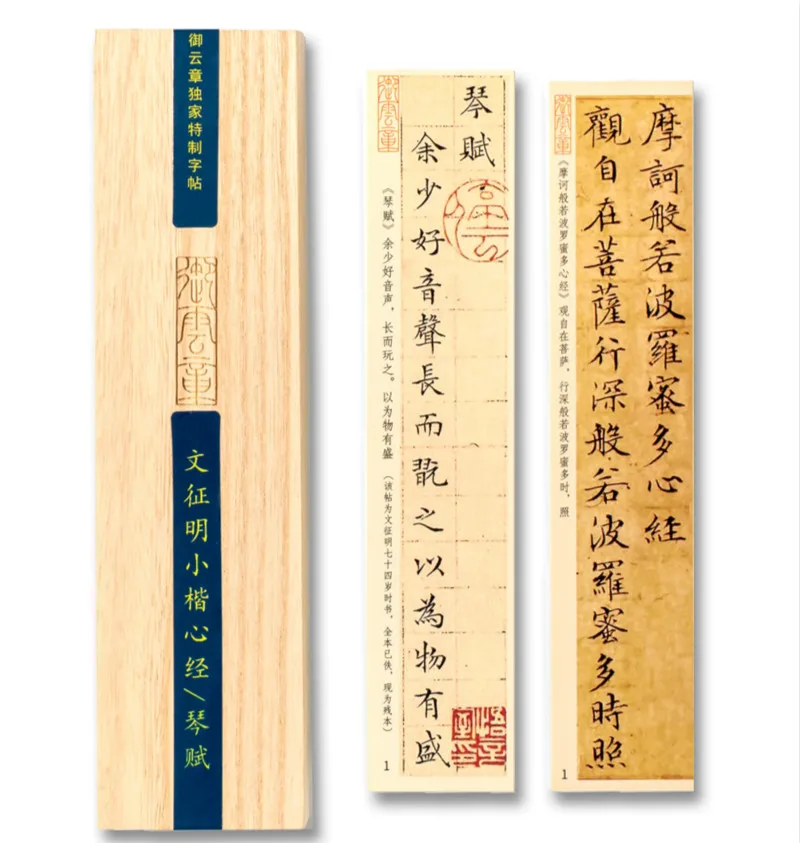 御云章独家特制字帖
御雲章
文征明小楷心经/琴赋
御雲章
琴賦
停云
余少好音聲長而翫之以為物有盛
悟言室印
《琴赋》余少好音声，长而玩之。以为物有盛（该帖为文征明七十四岁时书，全本已佚，现为残本）
1
御雲章
摩訶般若波羅蜜多心經
觀自在菩薩行深般若波羅蜜多時照
《摩诃般若波罗蜜多心经》观自在菩萨，行深般若波罗蜜多时，照
1